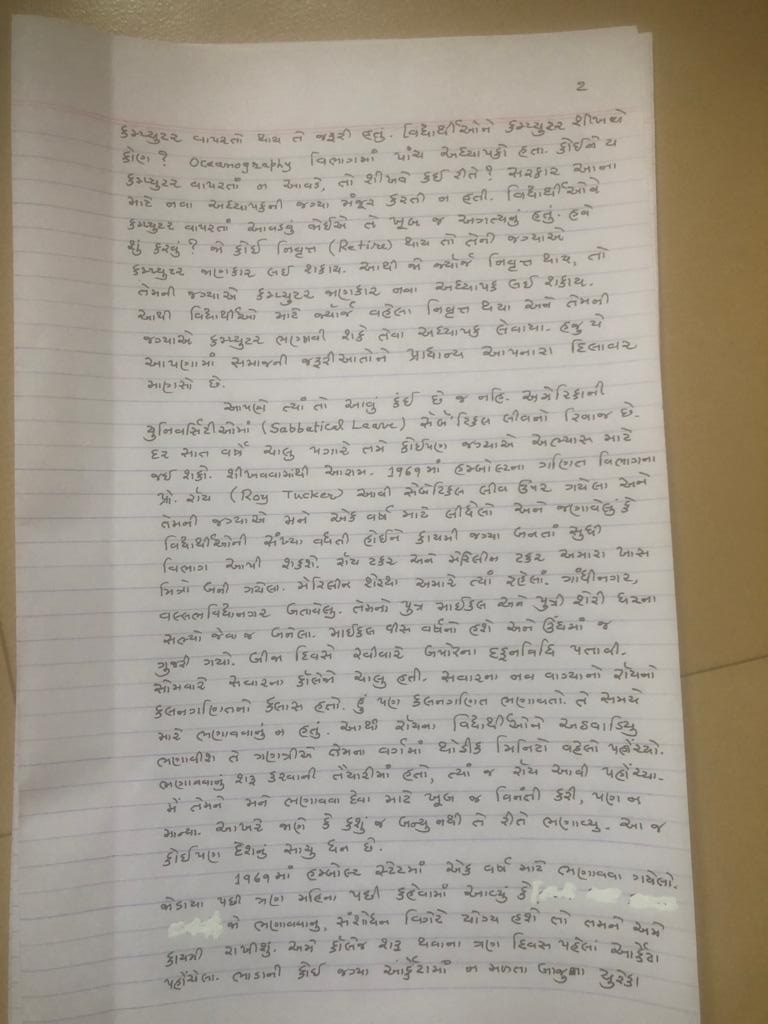 2
કમ્પ્યુટર વાપરતાં થાય તે જરૂરી હતું. વિદ્યાર્થીઓને કમ્પ્યુટર શીખવે
કોણ? Oceanography વિભાગમાં પાંચ અધ્યાપકો હતા. કોઈને ય
કમ્પ્યુટર વાપરતાં ન આવડે, તો શીખવે કઈ રીતે? સરકાર આના
માટે નવા અધ્યાપકની જગ્યા મંજૂર કરતી ન હતી. વિદ્યાર્થીઓને
કમ્પ્યુટર વાપરતાં આવડવું જોઈએ તે ખૂબ જ અગત્યનું હતું. હવે
શું કરવું? જો કોઈ નિવૃત્ત (Retire) થાય તો તેની જગ્યાએ
કમ્પ્યુટર જાણકાર લઈ શકાય. આથી જો જ્યૉર્જ નિવૃત્ત થાય, તો
તેમની જગ્યાએ કમ્પ્યુટર જાણકાર નવા અધ્યાપક લઈ શકાય.
આથી વિદ્યાર્થીઓ માટે જ્યૉર્જ વહેલા નિવૃત્ત થયા અને તેમની
જગ્યાએ કમ્પ્યુટર ભણાવી શકે તેવા અધ્યાપક લેવાયા. હજુ યે
આપણામાં સમાજની જરૂરીઆતોને પ્રાધાન્ય આપનારા દિલાવર
માણસો છે.
આપણે ત્યાં તો આવું કંઈ છે જ નહિ. અમેરિકાની
યુનિવર્સિટીઓમાં (Sabbatical Leave) સેબૅટિકલ લીવનો રિવાજ છે.
દર સાત વર્ષે ચાલુ પગારે તમે કોઈપણ જગ્યાએ અભ્યાસ માટે
જઈ શકો. શીખવવામાંથી આરામ. ૧૯૬૧માં હમ્બોલ્ટના ગણિત વિભાગના
પ્રો. રૉય (Roy Tucker) આવી સેબૅટિકલ લીવ ઉપર ગયેલા અને
તેમની જગ્યાએ મને એક વર્ષ માટે લીધેલો અને જણાવેલું કે
વિદ્યાર્થીઓની સંખ્યા વધતી હોઈને કાયમી જગ્યા બનતાં સુધી
વિભાગ આપી શકશે. રૉય ટકર અને મેરિલીન ટકર અમારા ખાસ
મિત્રો બની ગયેલા. મેરિલીન શેરથા અમારે ત્યાં રહેલાં. ગાંધીનગર,
વલ્લભવિદ્યાનગર બતાવેલુ. તેમનો પુત્ર માઈકલ અને પુત્રી શેરી ઘરના
સભ્યો જેવા જ બનેલા. માઈકલ વીસ વર્ષનો હશે અને ઉંઘમાં જ
ગુજરી ગયો. બીજા દિવસે રવીવારે બપોરના દફનવિધિ પતાવી.
સોમવારે સવારના કૉલેજ ચાલુ હતી. સવારના નવ વાગ્યાનો રૉયનો
કલનગણિતનો કલાસ હતો. હું પણ કલનગણિત ભણાવતો. તે સમયે
મારે ભણાવવાનું ન હતું. આથી રૉયના વિદ્યાર્થીઓને અઠવાડિયુ
ભણાવીશ તે ગણત્રીએ તેમના વર્ગમાં થોડીક મિનિટો વહેલો પહોંચ્યો.
ભણાવવાનું શરૂ કરવાની તૈયારીમાં હતો, ત્યાં જ રૉય આવી પહોંચ્યા.
મેં તેમને મને ભણાવવા દેવા માટે ખૂબ જ વિનંતી કરી, પણ ન
માન્યા. આખરે જાણે કે કશું જ બન્યુ નથી તે રીતે ભણાવ્યુ. આ જ
કોઈપણ દેશનું સાચુ ધન છે.
૧૯૬૧માં હમ્બોલ્ટ સ્ટેટમાં એક વર્ષ માટે ભણાવવા ગયેલો.
જોડાયા પછી ત્રણ મહિના પછી કહેવામાં આવ્યું કે
જો ભણાવવાનુ, સંશોધન વિગેરે યોગ્ય હશે તો તમને અમે
કાયમી રાખીશુ. અમે કૉલેજ શરૂ થવાના ત્રણ દિવસ પહેલાં આર્કેટા
પહોંચેલા. ભાડાની કોઈ જગ્યા આર્કેટામાં ન મળતા બાજુના યુરેકા